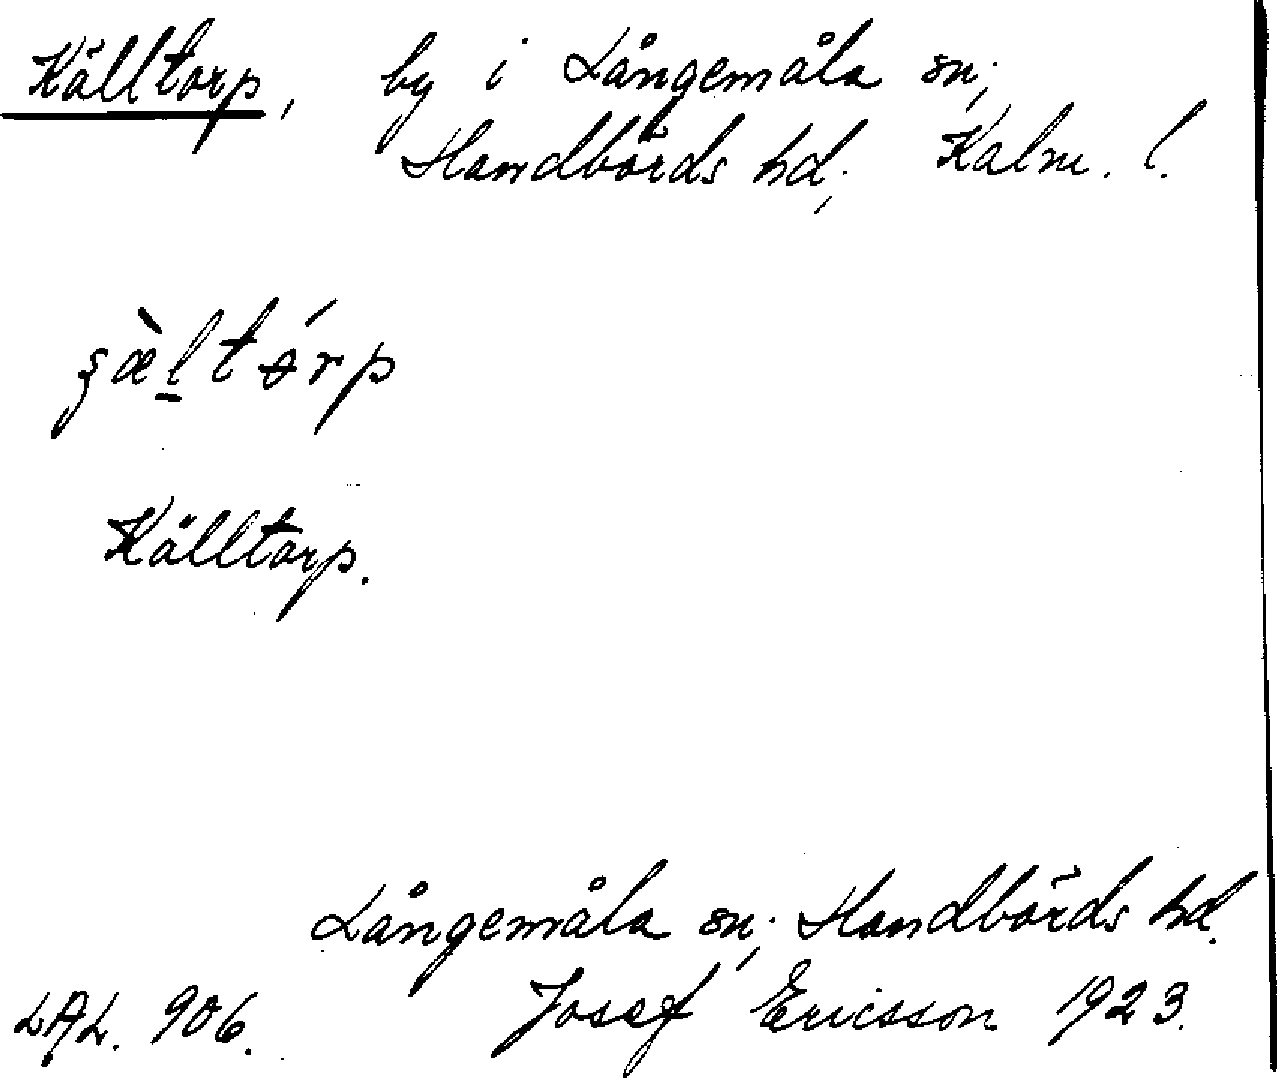 Källtorp, by i Långemåla sn;
Handbörds hd; Kalm. l.
Källtorp.
Långemåla sn; Handbörds hd.
LAL. 906. Josef Ericsson 1923.